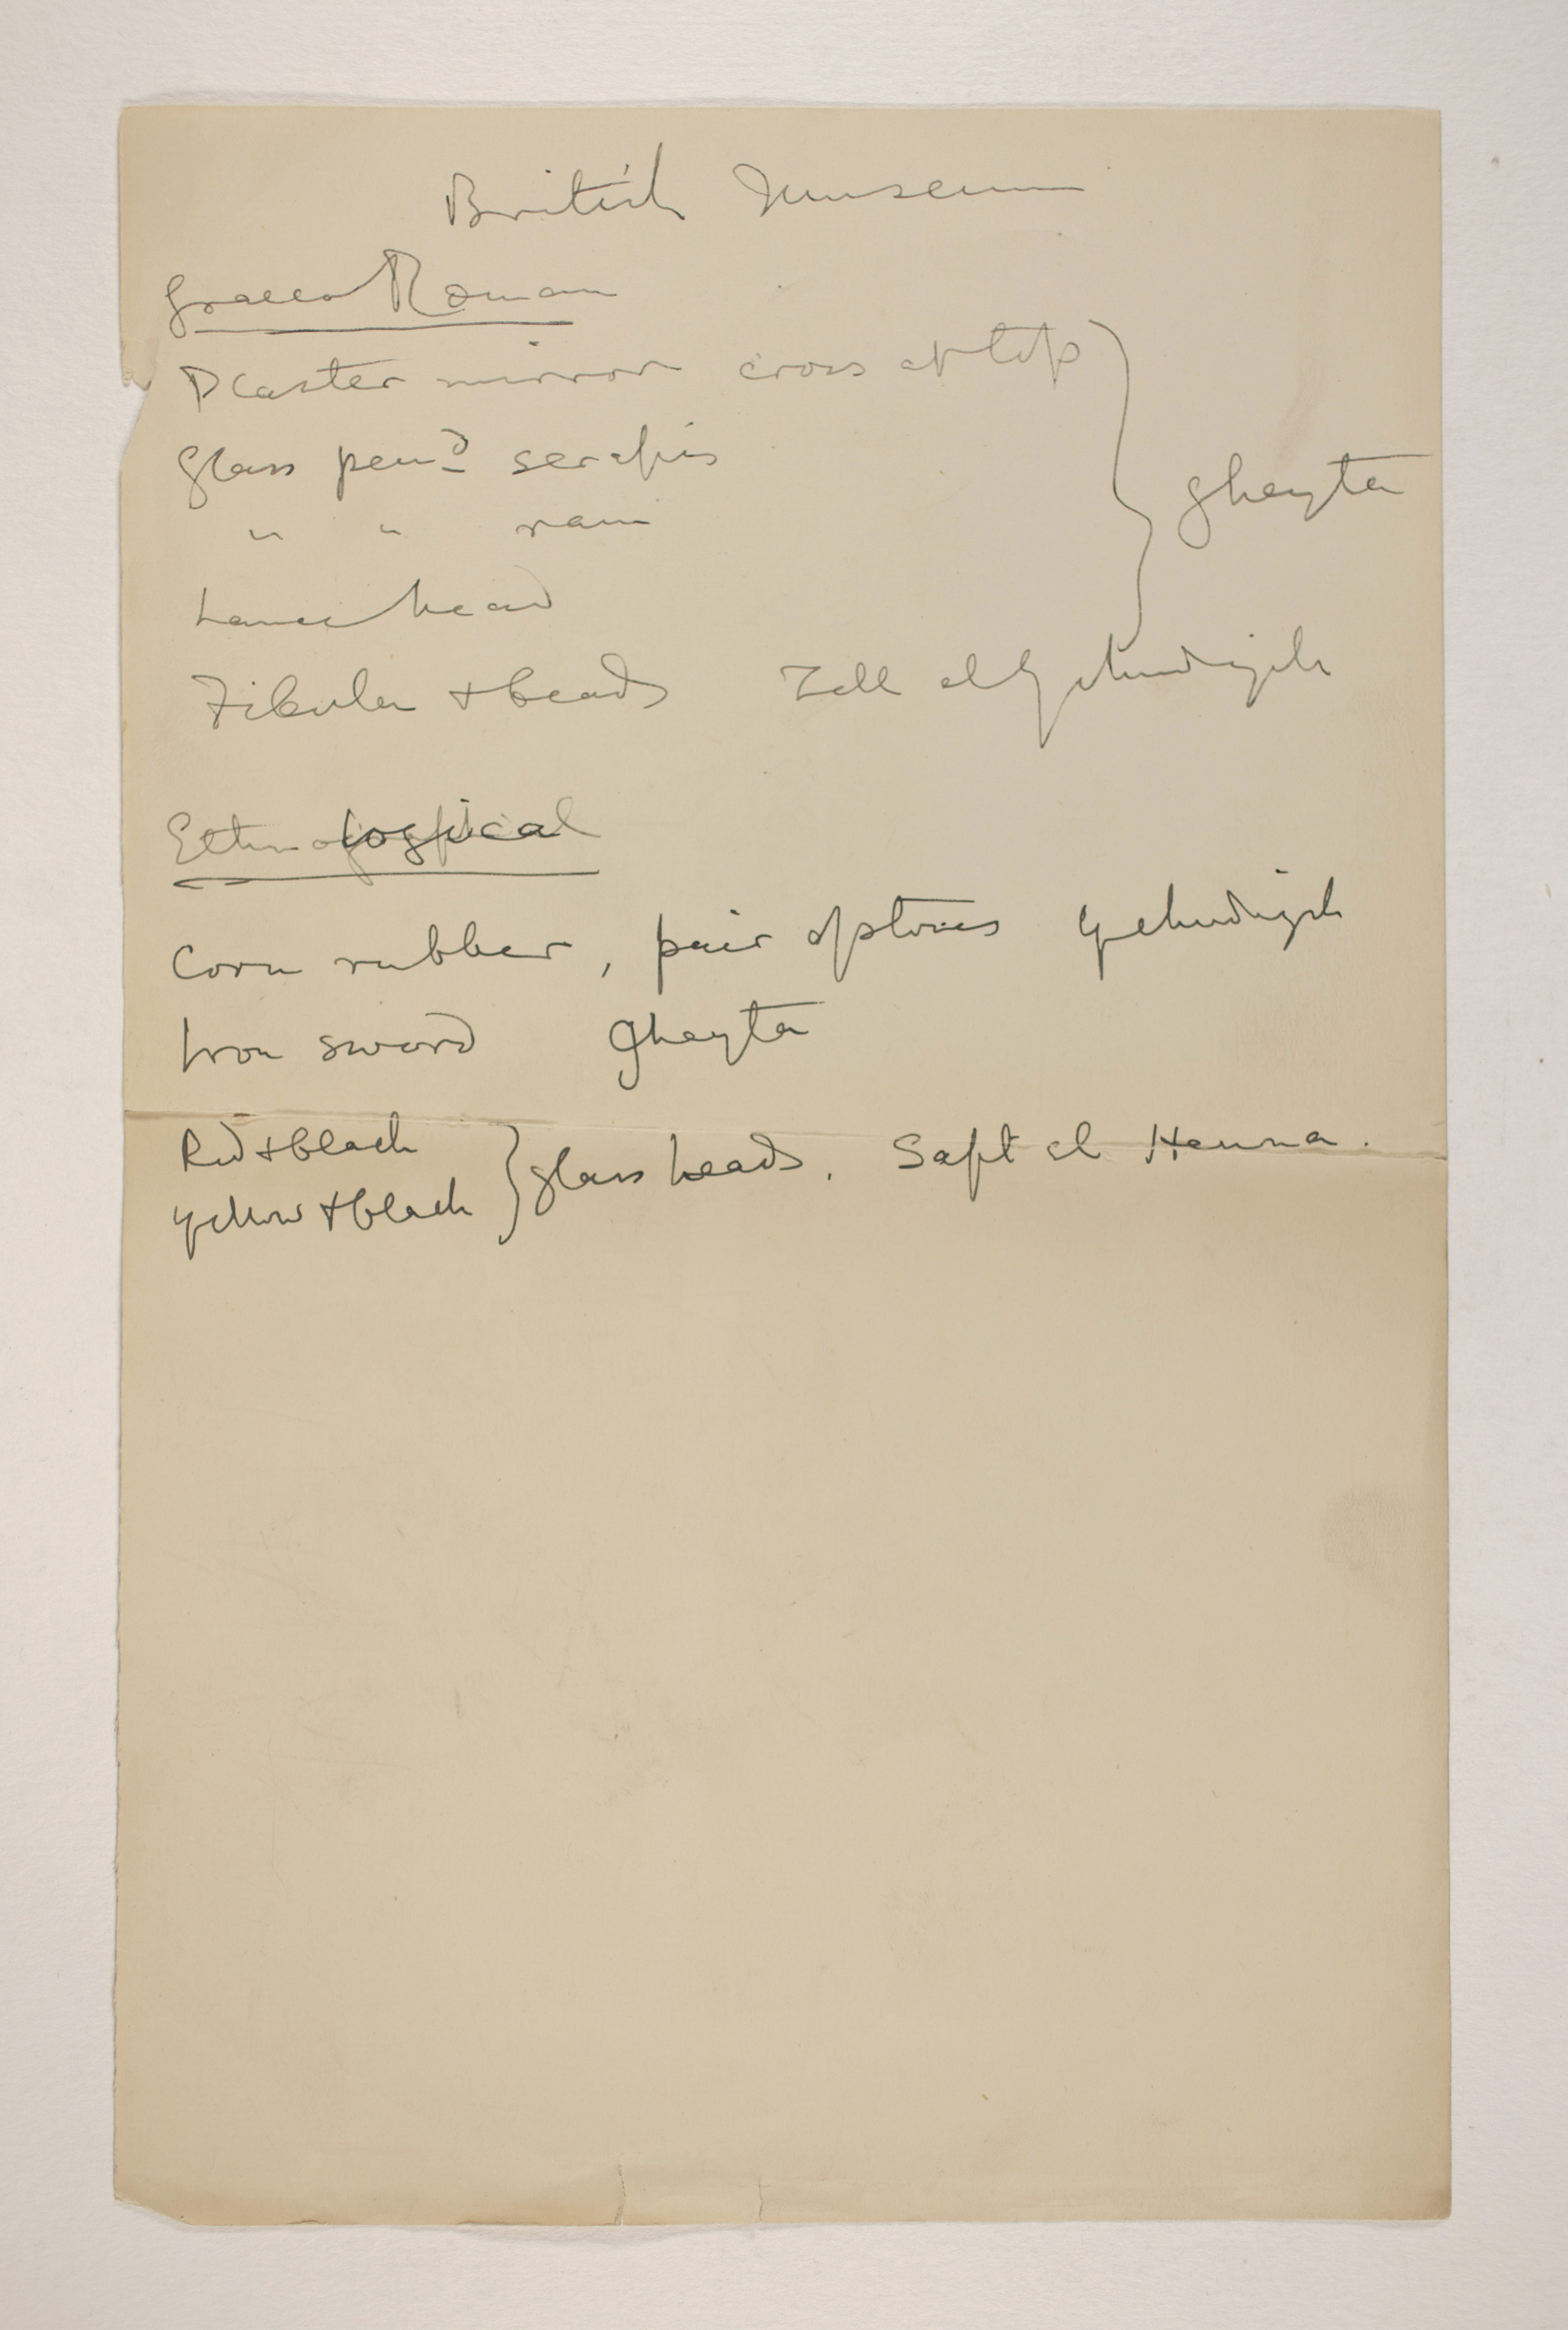 British Museum
Graeco Roman
Plaster mirror cross at top
Glass pend serapis
" " ram
} Gheyta
Lance head
Fibula + beads Tell el Yehudiyeh
Ethnological
Corn rubber, pair of stones Yehudiyeh
Iron sword Gheyta
Red + black
Yellow + black
} glass beads. Saft el Henna.